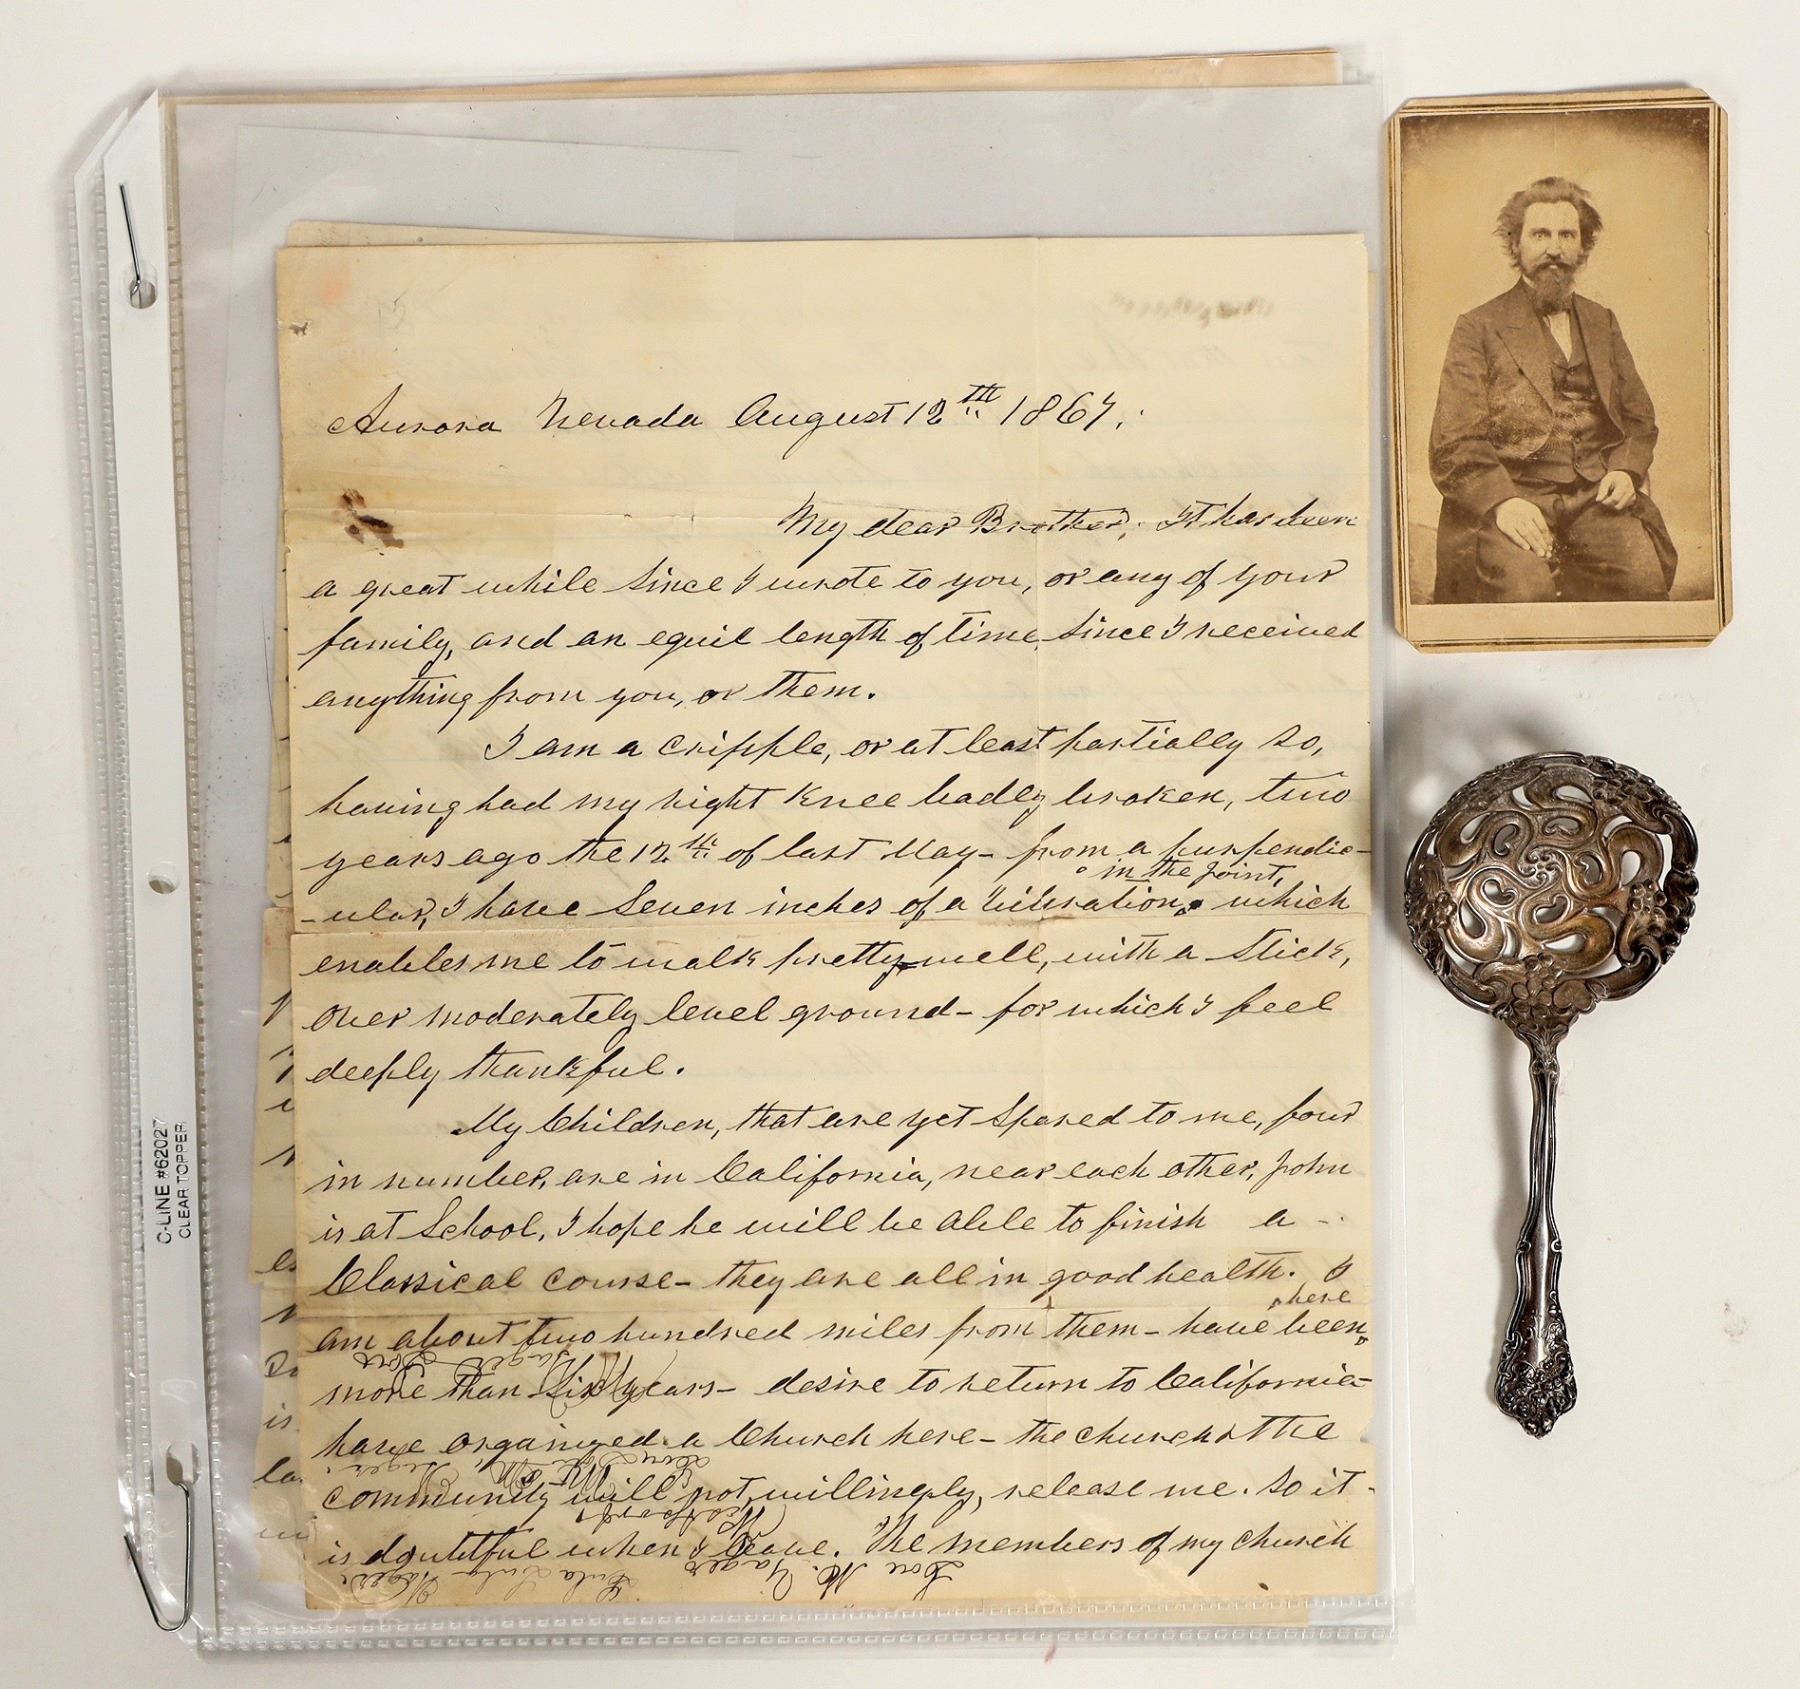 Aurora Nevada August 12th 1867.
My dear Brother; It has been
a great while since I wrote to you, or any of your
family, and an equil length of time since I received
anything from you, or them.
I am a cripple, or at least partially so,
having had my right knee badly broken, two
years ago the 12th of last May - from a purpendic-
in the joint,
-ular, I have seven inches of a vibration, which
enables me to walk pretty well, with a stick,
over moderately level ground - for which I feel
deeply thankful.
My Children, that are yet spared to me, four
in number, are in California, near each other, John
is at School, I hope he will be able to finish a -
Classical course - they are all in good health. I
here
am about two hundred miles from them - have been
more than six years - desire to return to California -
have organized a Church here - the church & the
community will not, willingly, release me. So it -
is doubtful when I leave. The members of my church
C-LINE #62027
CLEAR TOPPER